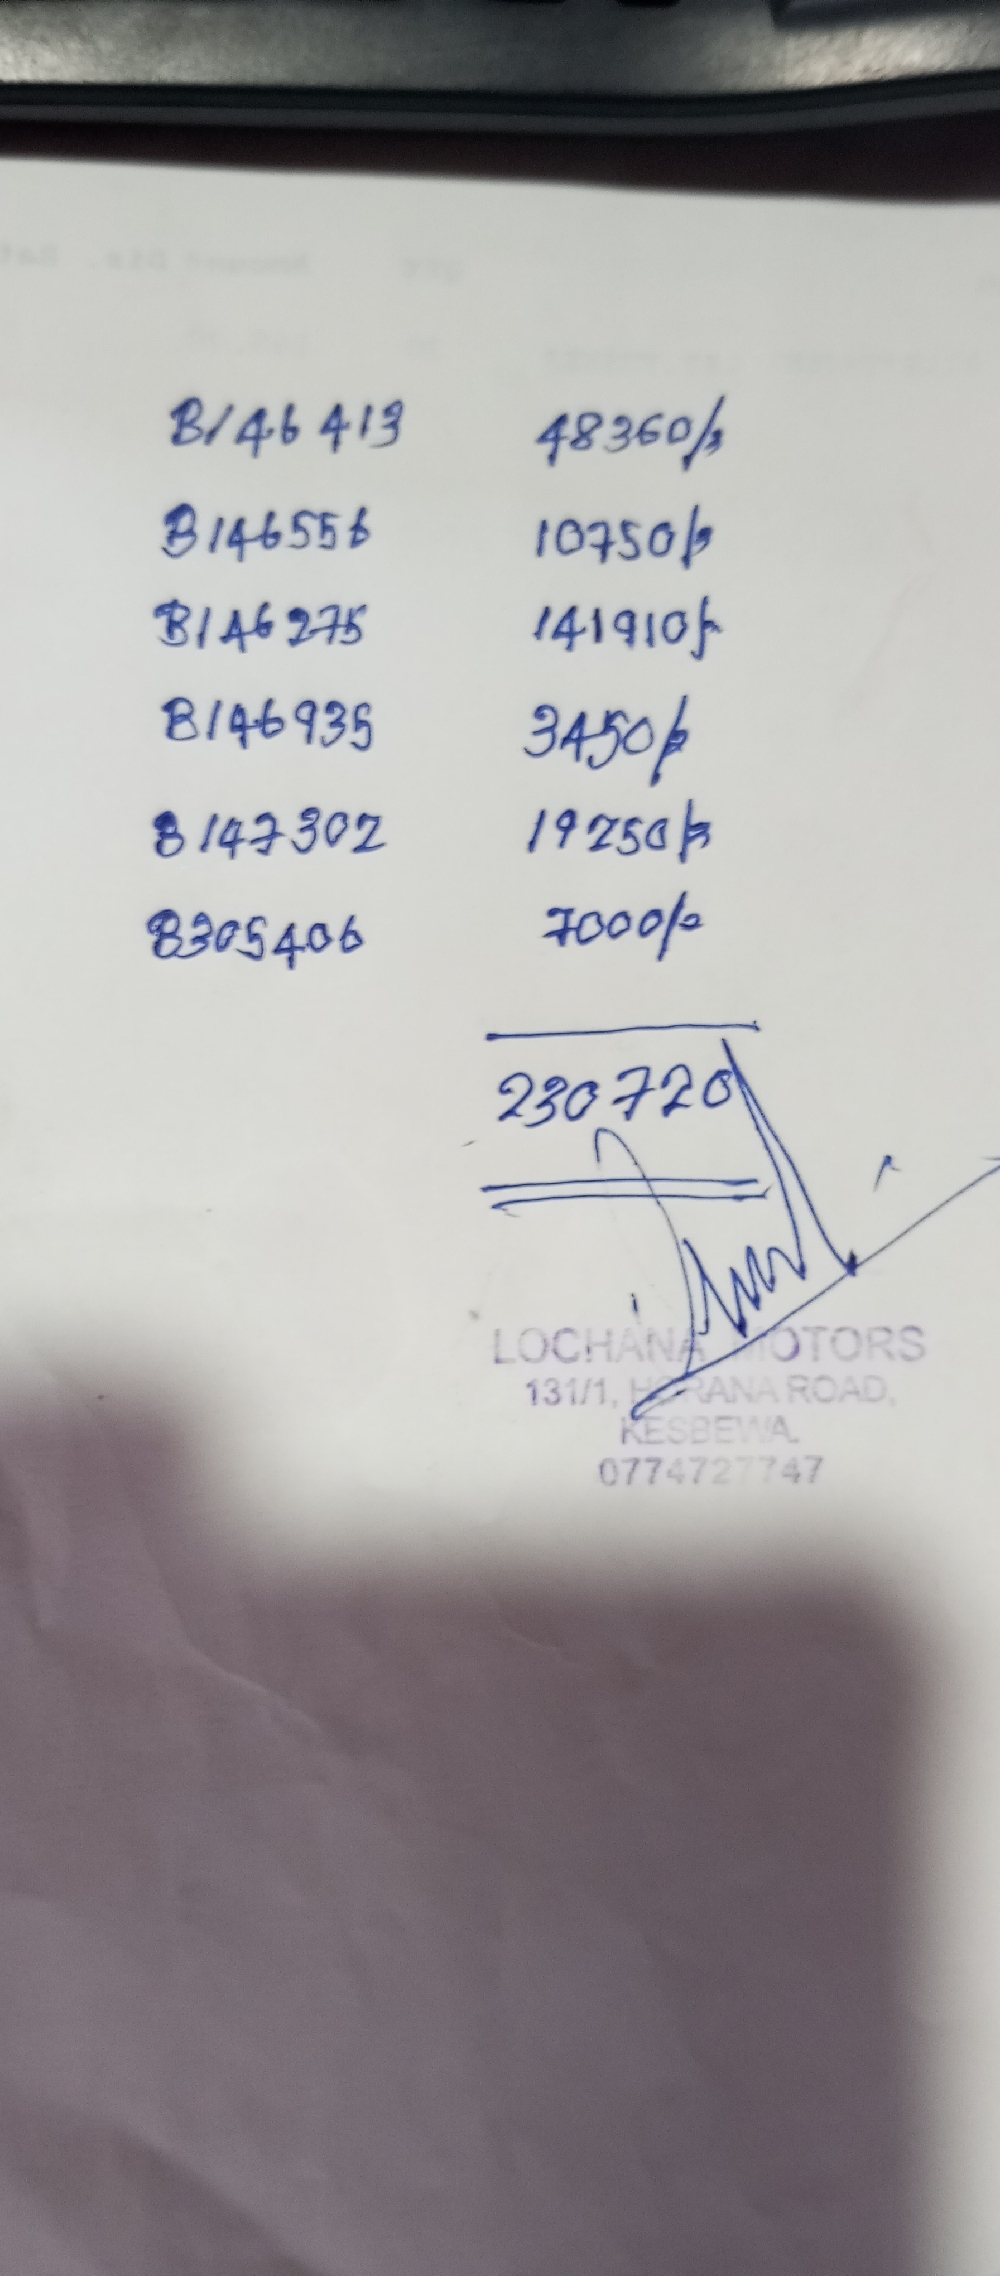 B146413 48360/=
B146556 10750/=
B146275 141910/=
B146935 3450/=
B147302 19250/=
B305406 7000/=
230720
LOCHANA MOTORS
131/1, HORANA ROAD,
KESBEWA.
0774727747